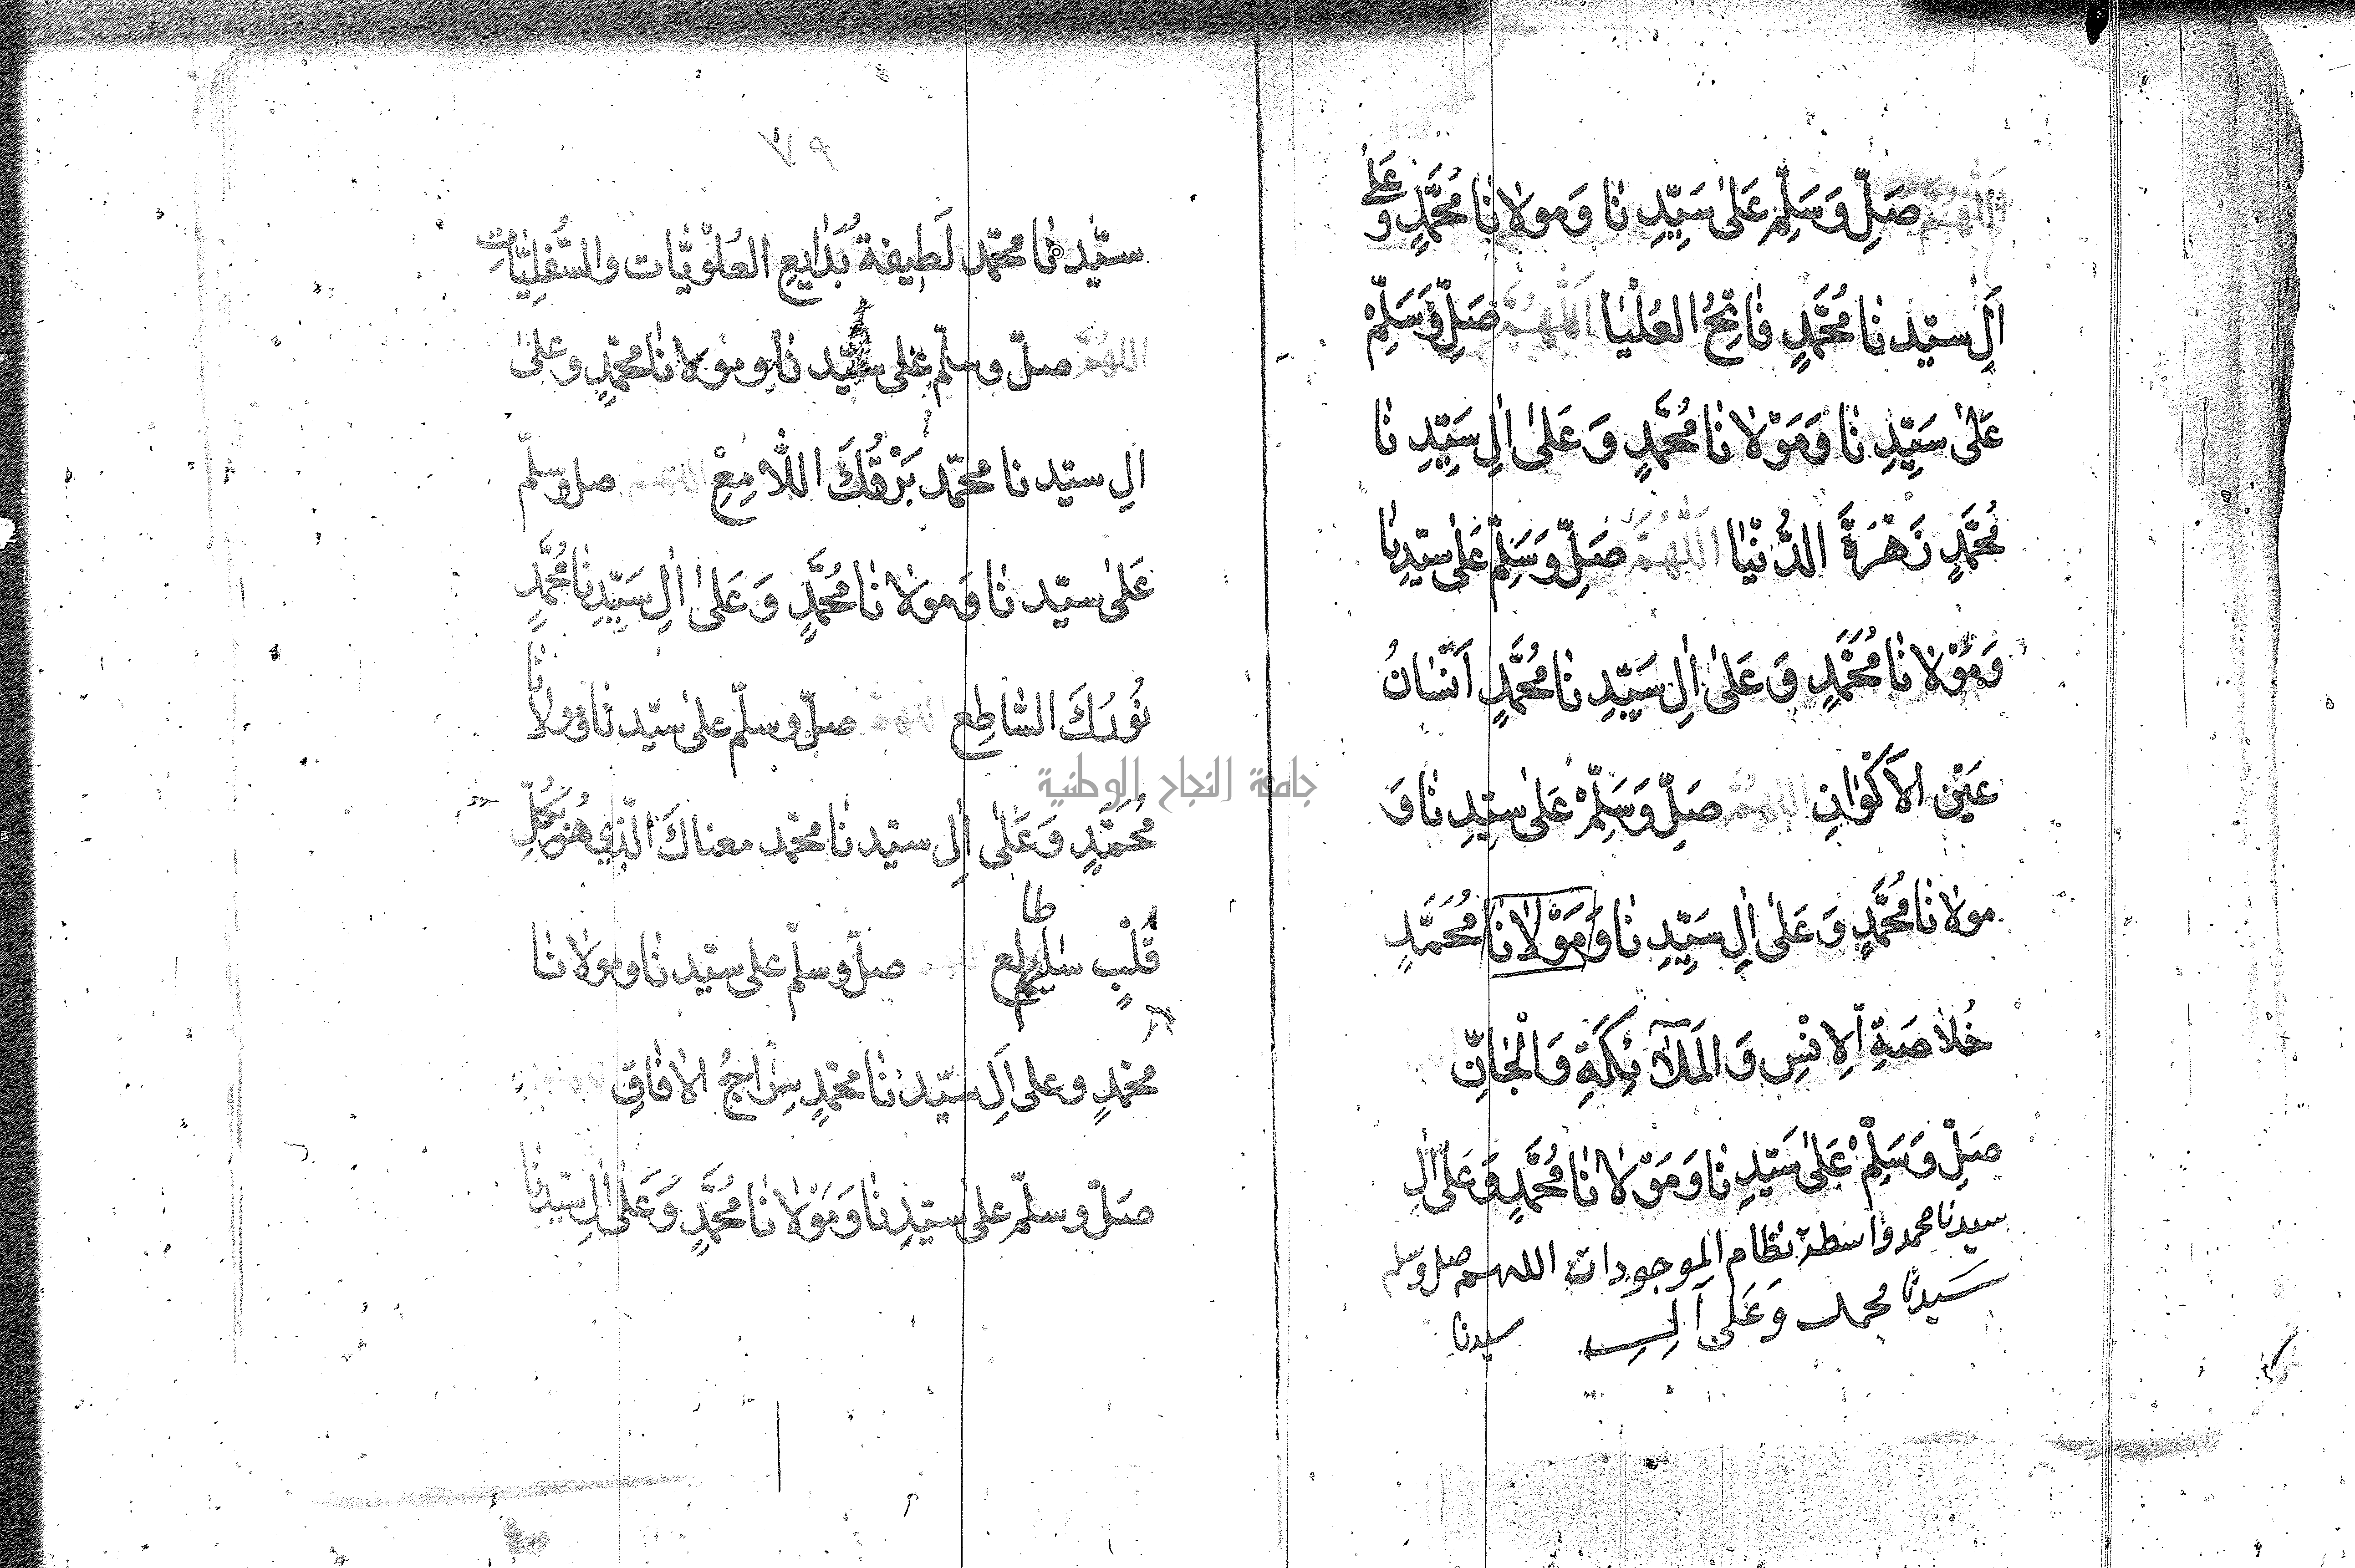 اَللّٰهُمَّ صَلِّ وَسَلِّمْ عَلىٰ سَيِّدِنَا وَمولانَا مُحَمَّدٍ وَعَلىٰ
اٰلِ سيّدِنَا مُحَمَّدٍ فَاتِحُ العُلْيَا اَللّٰهُمَّ صَلِّ وَسَلِّمْ
عَلىٰ سَيِّدِنَا وَمَوْلانَا مُحَمَّدٍ وَعَلىٰ اٰلِ سَيِّدِنَا
مُحَمَّدٍ زَهْرَةَ الدُّنْيَا اَللّٰهُمَّ صَلِّ وَسَلِّمْ عَلىٰ سيّدِنَا
وَمَوْلانَا مُحَمَّدٍ وَعَلىٰ اٰلِ سَيِّدِنَا مُحَمَّدٍ اَنْسَانُ
عَيْنِ الاَكْوَانِ اللهُمَّ صَلِّ وَسَلِّمْ عَلىٰ سيّدِنَا وَ
مولانَا مُحَمَّدٍ وَعَلىٰ اٰلِ سَيِّدِنَا وَمَوْلانَا مُحَمَّدٍ
خُلاصَةِ الاِنْسِ وَالمَلآئِكَةِ وَالْجَانِّ
صَلِّ وَسَلِّمْ عَلىٰ سَيِّدِنَا وَمَوْلانَا مُحَمَّدٍ وَعَلىٰ اٰلِ
سيدنا محمد واسطة نظام الموجودات اللهم صل وسلم
سَيدنا محمد وَعَلى آلِـــه سيدنا
٣٧٩
سيّدنا محمّد لَطِيفة بَدَايعِ العُلْوِيَّات والسُّفْلِيَّاتِ
اللهُمَّ صلّ وسلّم على سيّدنا ومولانا محمّدٍ وعلىٰ
الِ سيّدنا محمّد بَرْقُكَ اللّامِعِ اللهم صل وسلّم
عَلىٰ سيّدنا وَمولانا مُحَمَّدٍ وَعَلىٰ اٰلِ سَيِّدِنَا مُحَمَّدٍ
نُورُكَ السَّاطِع اللهمّ صلّ وسلّم علىٰ سيّدنا ومولانا
مُحَمَّدٍ وَعَلىٰ اٰلِ سيّدنا محمّد معناكَ الّذي هُوَ بِكُلِّ
قَلْبٍ ساطع صلّ وسلّم على سيّدنا ومولانا
محمّدٍ وعلى اٰلِ سيّدنا محمّدٍ سِرَاجُ الافَاقِ
صَلّ وسلّم على سيّدِنَا وَمَوْلانَا مُحَمَّدٍ وَعَلىٰ اٰلِ سيّدِنَا
جامعة النجاح الوطنية